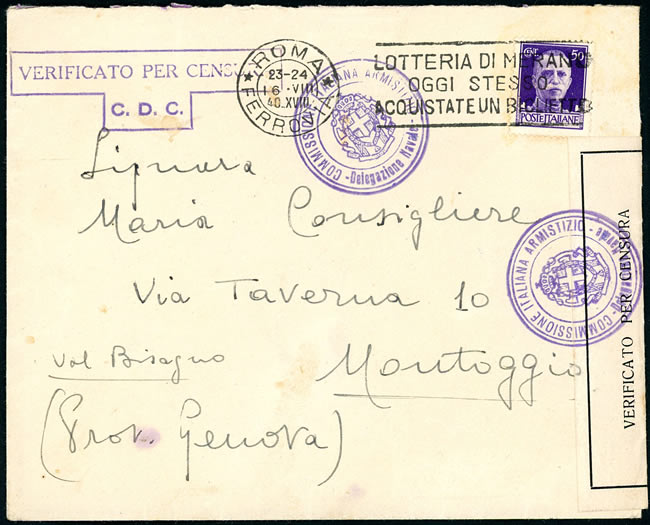 VERIFICATO PER CENSU
C. D. C.
ROMA
23-24
16 VIII
40.XVIII
FERROVIA
COMMISSIONE ITALIANA ARMISTIZIO
Delegazione Navale
LOTTERIA DI MERANO
OGGI STESSO
ACQUISTATE UN BIGLIETTO
50
POSTE ITALIANE
Signora
Maria Consigliere
Via Taverna 10
Val Bisagno
Montoggio
(Prov. Genova)
COMMISSIONE ITALIANA ARMISTIZIO
VERIFICATO PER CENSURA